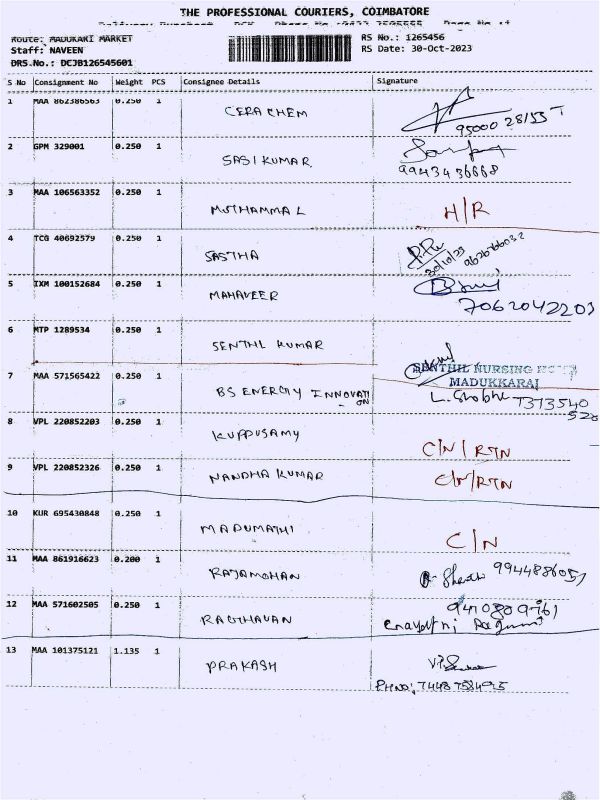 THE PROFESSIONAL COURIERS, COIMBATORE
Route: MADUKARI MARKET
Staff: NAVEEN
DRS.No.: DCJB126545601
RS No.: 1265456
RS Date: 30-Oct-2023
S No Consignment No Weight PCS Consignee Details Signature
1 MAA 862386563 0.250 1 CERA CHEM
95000 28155
2 GPM 329001 0.250 1 SASI KUMAR
99434 36868
3 MAA 106563352 0.250 1 MUTHAMMAL H/R
4 TCG 40692579 0.250 1 SASTHA
30/10/23
5 IXM 100152684 0.250 1 MAHAVEER
7062042203
6 MTP 1289534 0.250 1 SENTHIL KUMAR
SENTHIL NURSING
MADUKKARAI
7 MAA 571565422 0.250 1 BS ENERGY INNOVATI
-ON
8 VPL 220852203 0.250 1 KUPPUSAMY C/N/RTN
9 VPL 220852326 0.250 1 NANDHA KUMAR C/N/RTN
10 KUR 695430848 0.250 1 MADUMATHI C/N
11 MAA 861916623 0.200 1 RAJAMOHAN 9944886057
12 MAA 571602505 0.250 1 RAGTHAVAN
13 MAA 101375121 1.135 1 PRAKASH